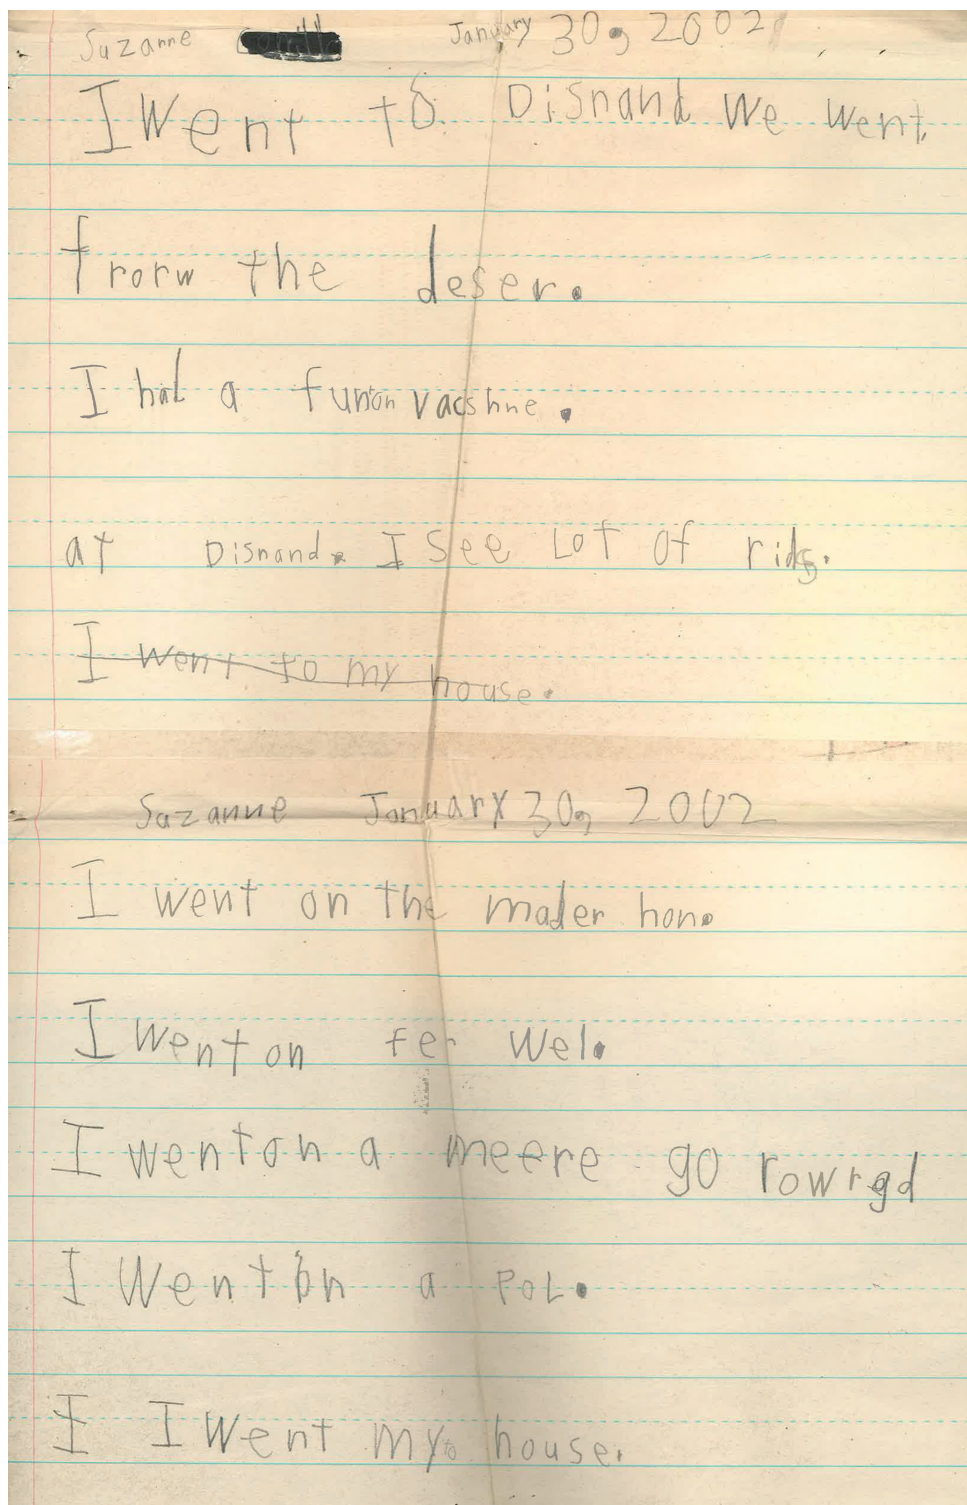 Suzanne January 30, 2002
I went to Disnand We went
frorw the deser.
I had a fun on vacshne.
at Disnand. I see LOT of rids.
I went to my house.
Suzanne January 30, 2002
I went on the mader hon.
I went on fer wel.
I went on a meere go rowrgd
I went on a POL.
I I went my to house.